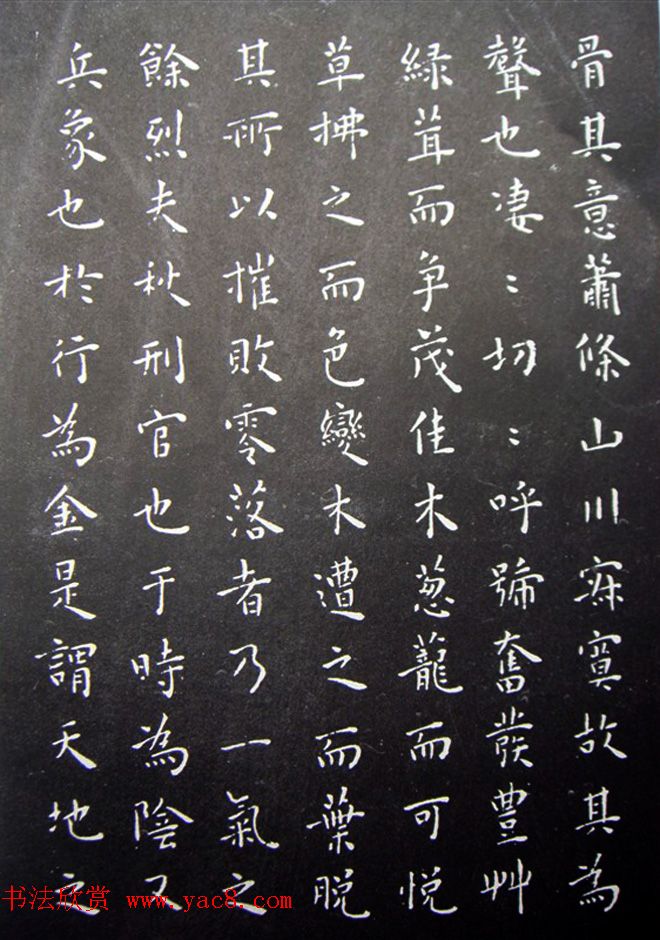 骨其意蕭條山川寂寞故其為
聲也淒〻切〻呼號奮發豐艸
緑茸而争茂佳木葱蘢而可悦
草拂之而色變木遭之而葉脱
其所以摧敗零落者乃一氣之
餘烈夫秋刑官也于時為陰又
兵象也於行為金是謂天地之
书法欣赏 www.yac8.com